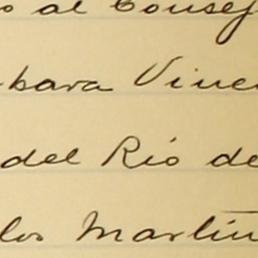 o al Consej
bara Vince
del Río de
los Martín